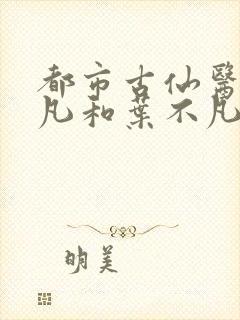 都市古仙醫
凡和葉不凡
明美